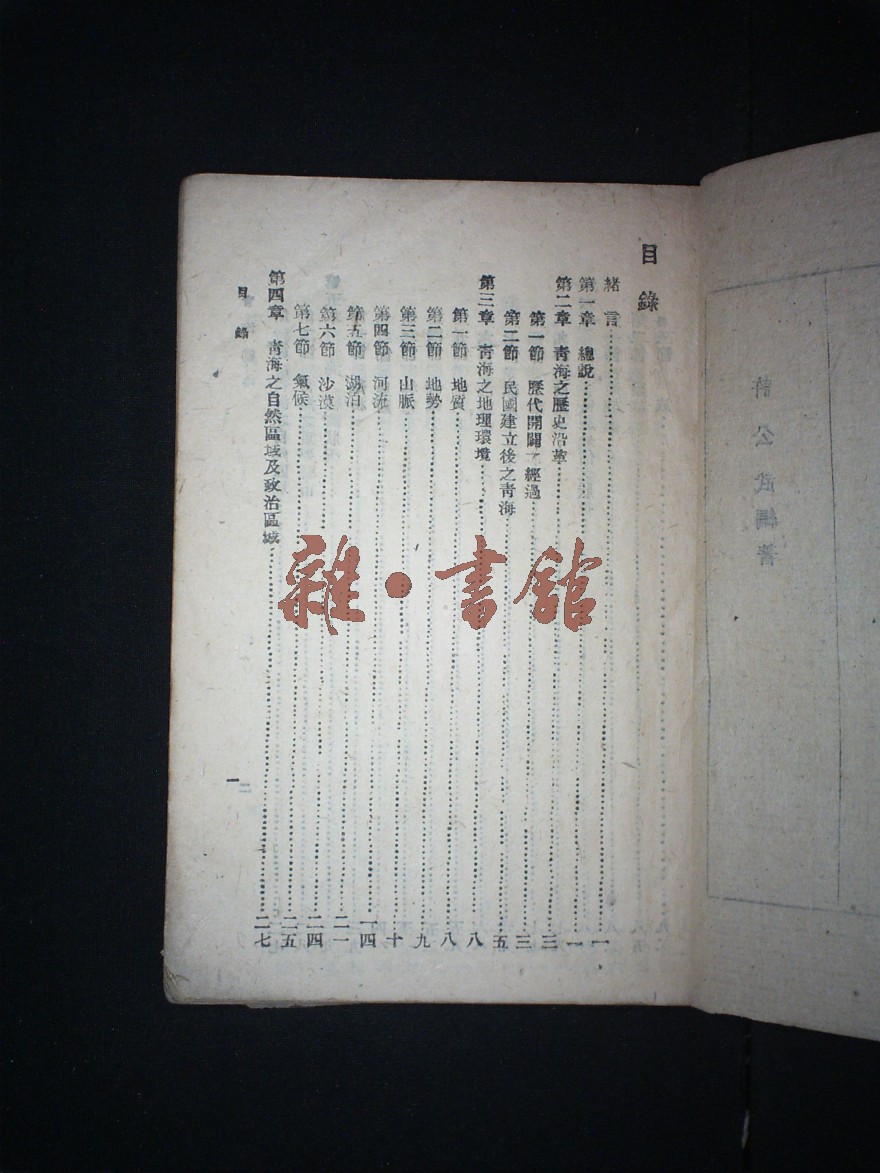 目錄
緒言⋯⋯一
第一章 總說⋯⋯一
第二章 青海之歷史沿革⋯⋯三
第一節 歷代開闢之經過⋯⋯三
第二節 民國建立後之青海⋯⋯五
第三章 青海之地理環境⋯⋯八
第一節 地質⋯⋯八
第二節 地勢⋯⋯九
第三節 山脈⋯⋯十
第四節 河流⋯⋯一四
第五節 湖泊⋯⋯二一
第六節 沙漠⋯⋯二四
第七節 氣候⋯⋯二五
第四章 青海之自然區域及政治區域⋯⋯二七
目錄
一
許公武編著
雜·書館